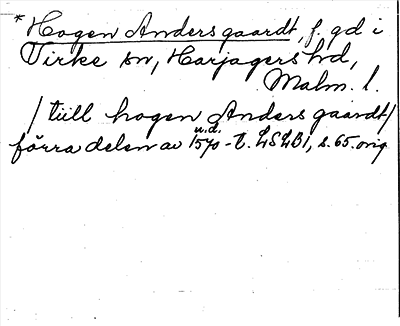 *Hogen Anders gaardt, f. gd i
Virke sn, Harjagers hd,
Malm. l.
/tüll hogen Anders gaardt/
förra delen av u.d. 1570-t. LSLB1, s. 65. orig